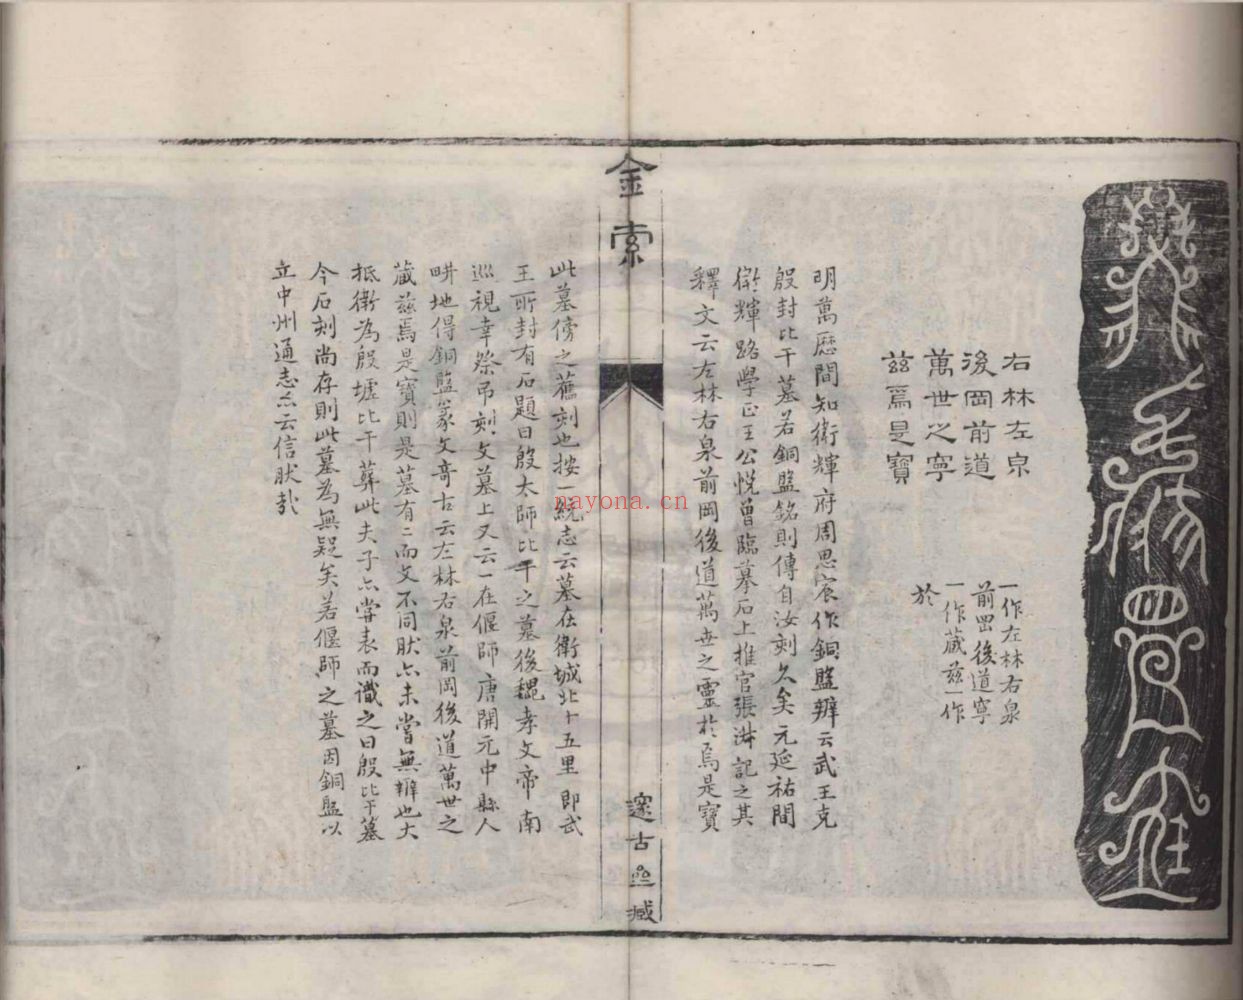 右林左泉
後岡前道
萬世之寧
茲焉是寶
一作左林右泉
前岡後道寧
一作藏茲一作
於
明萬厯間知衛輝府周思宸作銅盤辨云武王克
殷封比干墓若銅盤銘則傳自汝刻久矣元延祐間
衛輝路學正王公悅曾臨摹石上推官張淋記之其
釋文云左林右泉前岡後道萬世之靈於焉是寶
金索
邃古𠫵臧
此墓傍之舊刻也按一統志云墓在衛城北十五里即武
王所封有石題曰殷太師比干之墓後魏孝文帝南
巡視幸祭吊刻文墓上又云一在偃師唐開元中縣人
畊地得銅盤篆文奇古云左林右泉前岡後道萬世之
藏茲焉是寶則是墓有二而文不同肰亦未嘗無辨也大
抵衛為殷墟比干葬此夫子亦嘗表而識之曰殷比干墓
今石刻尚存則此墓為無疑矣若偃師之墓因銅盤以
立中州通志亦云信肰哉
nayona.cn